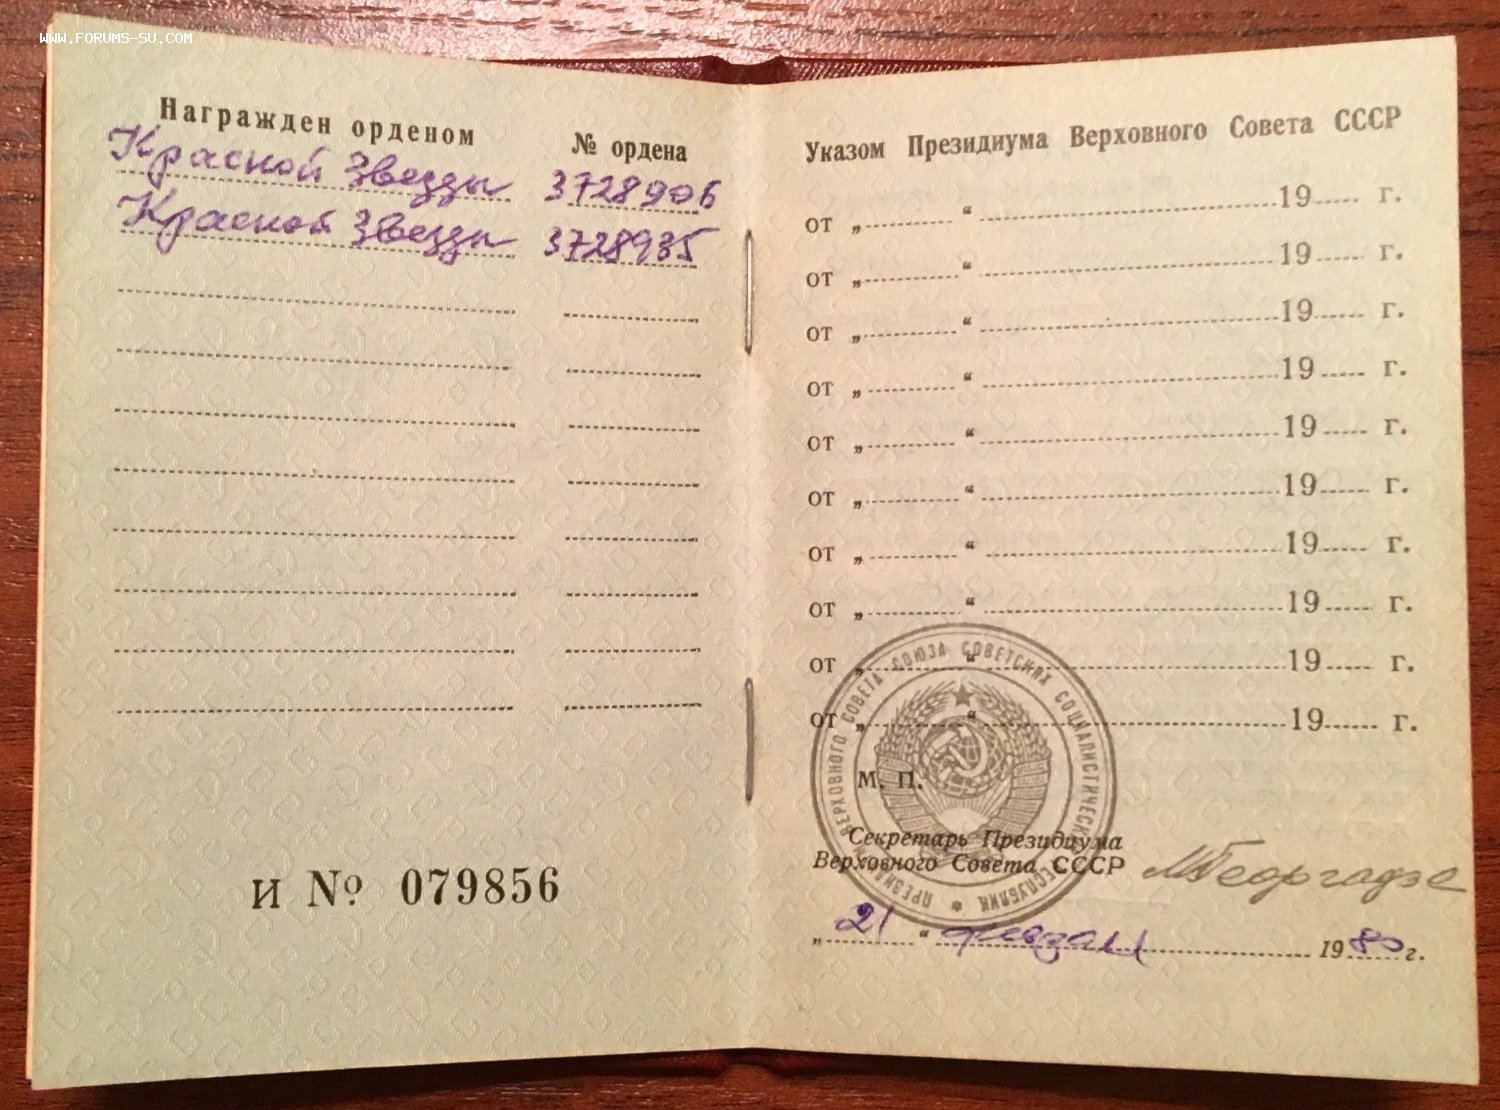 WWW.FORUMS-SU.COM
Награжден орденом № ордена
Красной Звезды 3728906
Красной Звезды 3728935
И № 079856
Указом Президиума Верховного Совета СССР
от „ “ 19 г.
от „ “ 19 г.
от „ “ 19 г.
от „ “ 19 г.
от „ “ 19 г.
от „ “ 19 г.
от „ “ 19 г.
от „ “ 19 г.
от „ “ 19 г.
от „ “ 19 г.
ПРЕЗИДИУМ ВЕРХОВНОГО СОВЕТА СОЮЗА СОВЕТСКИХ СОЦИАЛИСТИЧЕСКИХ РЕСПУБЛИК
М. П.
Секретарь Президиума
Верховного Совета СССР МГеоргадзе
„ 21 “ февраля 1980 г.